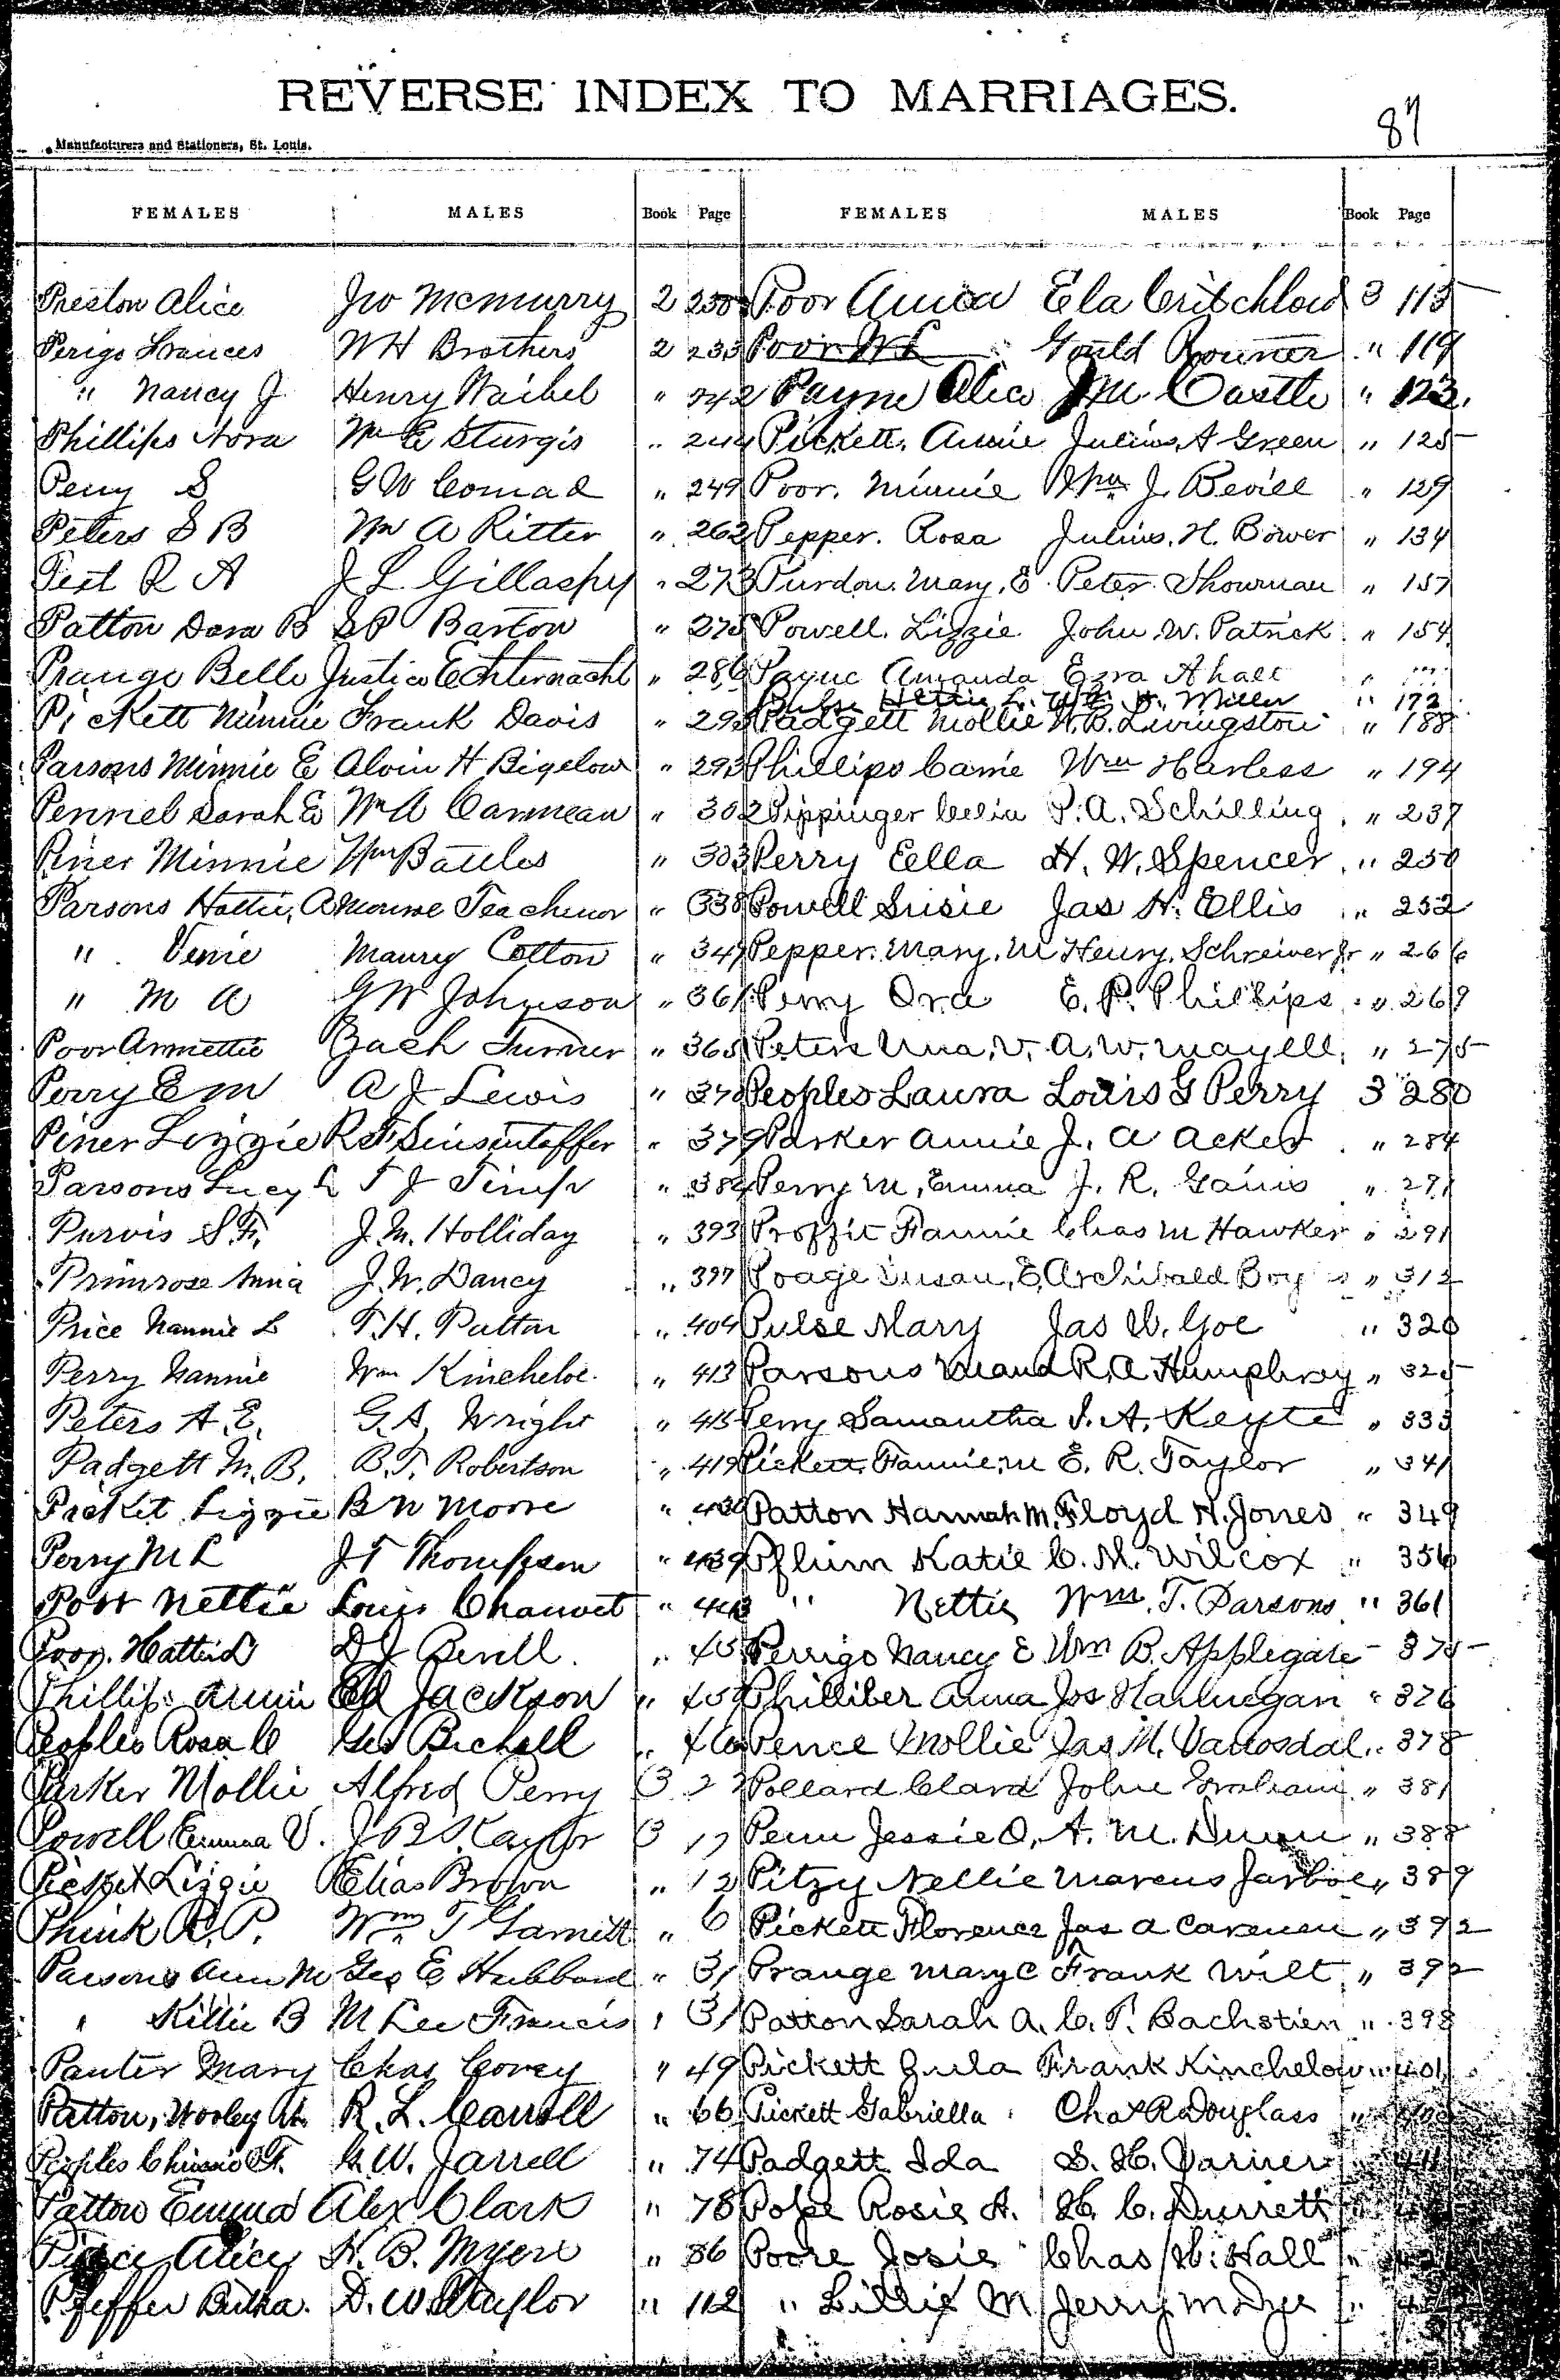 REVERSE INDEX TO MARRIAGES.
87
Manufacturers and Stationers, St. Louis.
FEMALES MALES Book Page FEMALES MALES Book Page
Preston Alice Jno McMurry 2 230
Perigo Frances WH Brothers 2 233
" Nancy J Henry Waibel " 242
Phillips Nora Wm E Sturgis " 244
Perry S G W Conrad " 249
Peters S B Wm A Ritter " 262
Pest R A J L Gillaspy " 273
Patton Dora B S P Barton " 275
Prange Belle Justice Echternacht " 286
Pickett Minnie Frank Davis " 293
Parsons Minnie E Alvin H Bigelow " 293
Pennel Sarah E Wm A Canmean " 302
Piner Minnie Wm Battles " 303
Parsons Hattie A Monroe Teachenor " 338
" Venie Maury Cotton " 347
" M A G W Johnson " 361
Poor Annettie Zach Turner " 365
Perry E M A J Lewis " 370
Piner Lizzie R F " 379
Parsons Lucy L T J " 384
Purvis S. F. J. M. Holliday " 393
Primrose Anna J. W. Dancy " 397
Price Nannie L T. H. Patton " 404
Perry Nannie Wm Kincheloe " 413
Peters A. E. G. A. Wright " 415
Padgett M. B. B. F. Robertson " 419
Picket Lizzie B N Moore " 430
Perry M L J T Thompson " 439
Post Nettie Louis Chauvet " 443
Poor. Hattie L D J Bevill. "
Phillips Annie Ed Jackson "
Peoples Rosa C Geo Bichell "
Parker Mollie Alfred Perry 3
Powell Emma V. J B S Kaylor 3 17
Picket Lizzie Elias Brown " 12
Phink R. P. Wm T Garnett " 6
Parsons Ann M Geo E Hubbard " 31
" Killie B M Lee Francis " 31
Panter Mary Chas Covey " 49
Patton, Wooley R. L. Carroll " 66
Peoples F. G. W. Jarrell " 74
Patton Emma Alex Clark " 78
Alice H. B. Myers " 86
Pfeffer Butha. D. W. Staylor " 112
Poor Annea Ela Critchlow 3 115
Poor W L Gould Rouner " 119
Payne Alice J M. Castle " 123
Pickett, Annie Julius A Green " 125
Poor. Minnie Wm J. Bevill " 129
Pepper. Rosa Julius. H. Bower " 134
Purdon. Mary. E Peter Showman " 157
Powell. Lizzie John. W. Patrick " 154
Payne Amanda Ezra Ahall "
Pulse Hettie L. Wm H. Miller " 172
Padgett Mollie W. B. Livingston " 188
Phillips Carrie Wm Harless " 194
Pippinger Celia P. A. Schilling " 237
Perry Ella H. W. Spencer " 250
Powell Susie Jas H. Ellis " 252
Pepper. Mary. M Henry. Schreiver Jr " 266
Perry Ora E. P. Phillips " 269
Peters Una. V. A. W. Mayell " 275
Peoples Laura Louis G Perry 3 280
Parker Annie J. A Acker " 284
Perry M. Emma J. R. Gains " 291
Proffit Fannie Chas M Hawker " 291
Poage Susan. E. Archibald " 312
Pulse Mary Jas W. Goe " 320
Parsons Maud R. A Humphrey " 325
Perry Samantha J. A. Keyte " 333
Pickett Fannie. M E. R. Taylor " 341
Patton Hannah M. Floyd H. Jones " 349
Pflum Katie C. M. Wilcox " 356
" Nettie Wm. T. Parsons " 361
Perrigo Nancy E Wm B. Applegate " 375
Philliber Anna Jos Harlnegan " 376
Pence Mollie Jas M. Vanosdal " 378
Pollard Clara John Graham " 381
Penn Jessie O. A. M. Dunn " 388
Pitzy Nellie Marcus Jarboe " 389
Pickett Florence Jas A Cavenau " 392
Prange Mary C Frank Wilt " 392
Patton Sarah A. C. T. Bachstien " 398
Pickett Zula Frank Kinchelow " 401
Pickett Gabriella Chas R Douglass "
Padgett Ida S. H. Variner
Pope Rosie A. H. C. Durrett
Poore Josie Chas W. Hall "
" Lillie M Jerry M Dye "